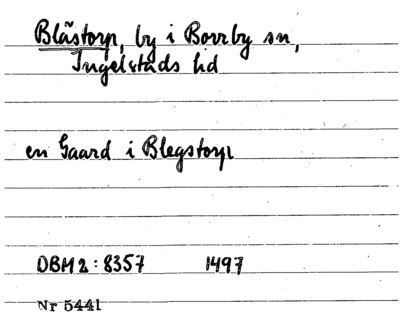 Blästorp, by i Borrby sn,
Ingelstads hd
en Gaard i Blegstorp
DBM 2: 8357 1497
Nr 5441